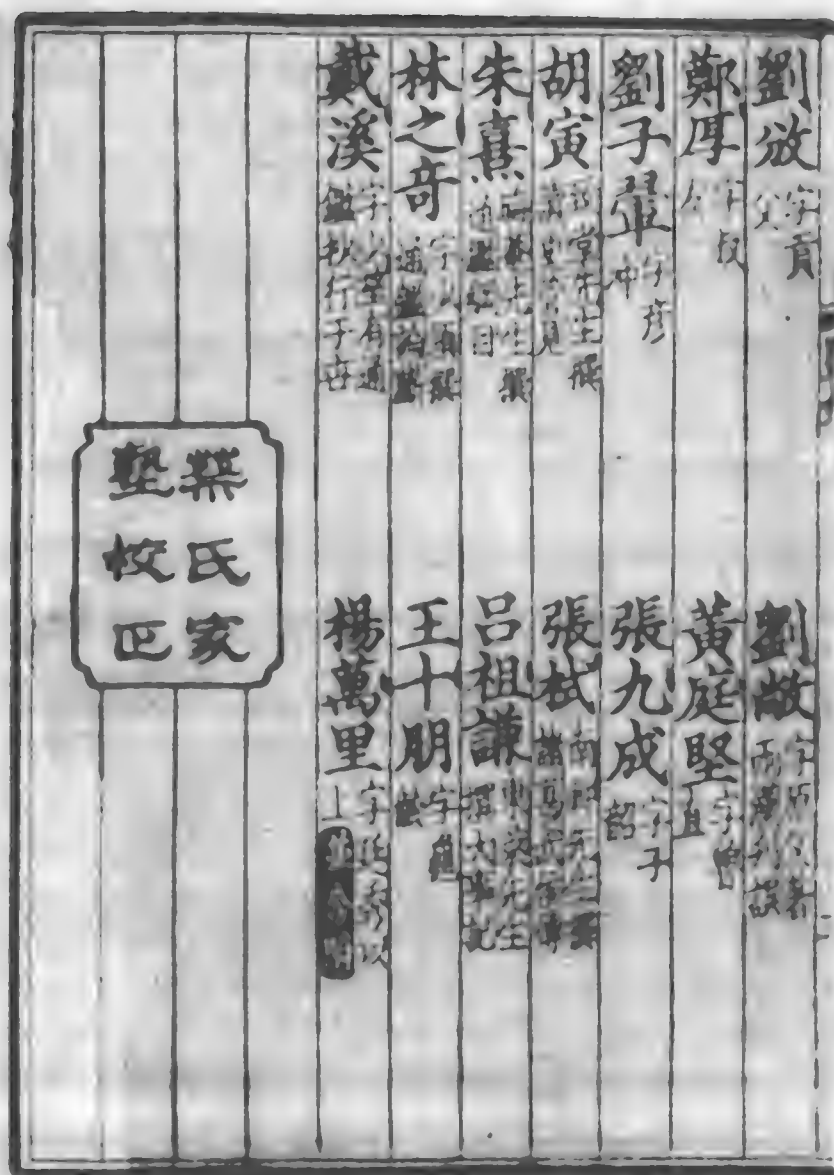 劉攽 字貢父 劉敞
鄭厚 字叔友 黃庭堅 字魯直
劉子翬 字彥冲 張九成 字子韶
胡寅 致堂先生撰讀史管見 張栻 南軒先生撰諸葛武侯傳
朱熹 晦菴先生撰通鑑綱目 呂祖謙 東萊先生撰大事記
林之奇 字少穎撰通鑑 王十朋 字龜齡
戴溪 字少望有通鑑 行于世 楊萬里 字廷秀以上
蔡氏家
塾校正